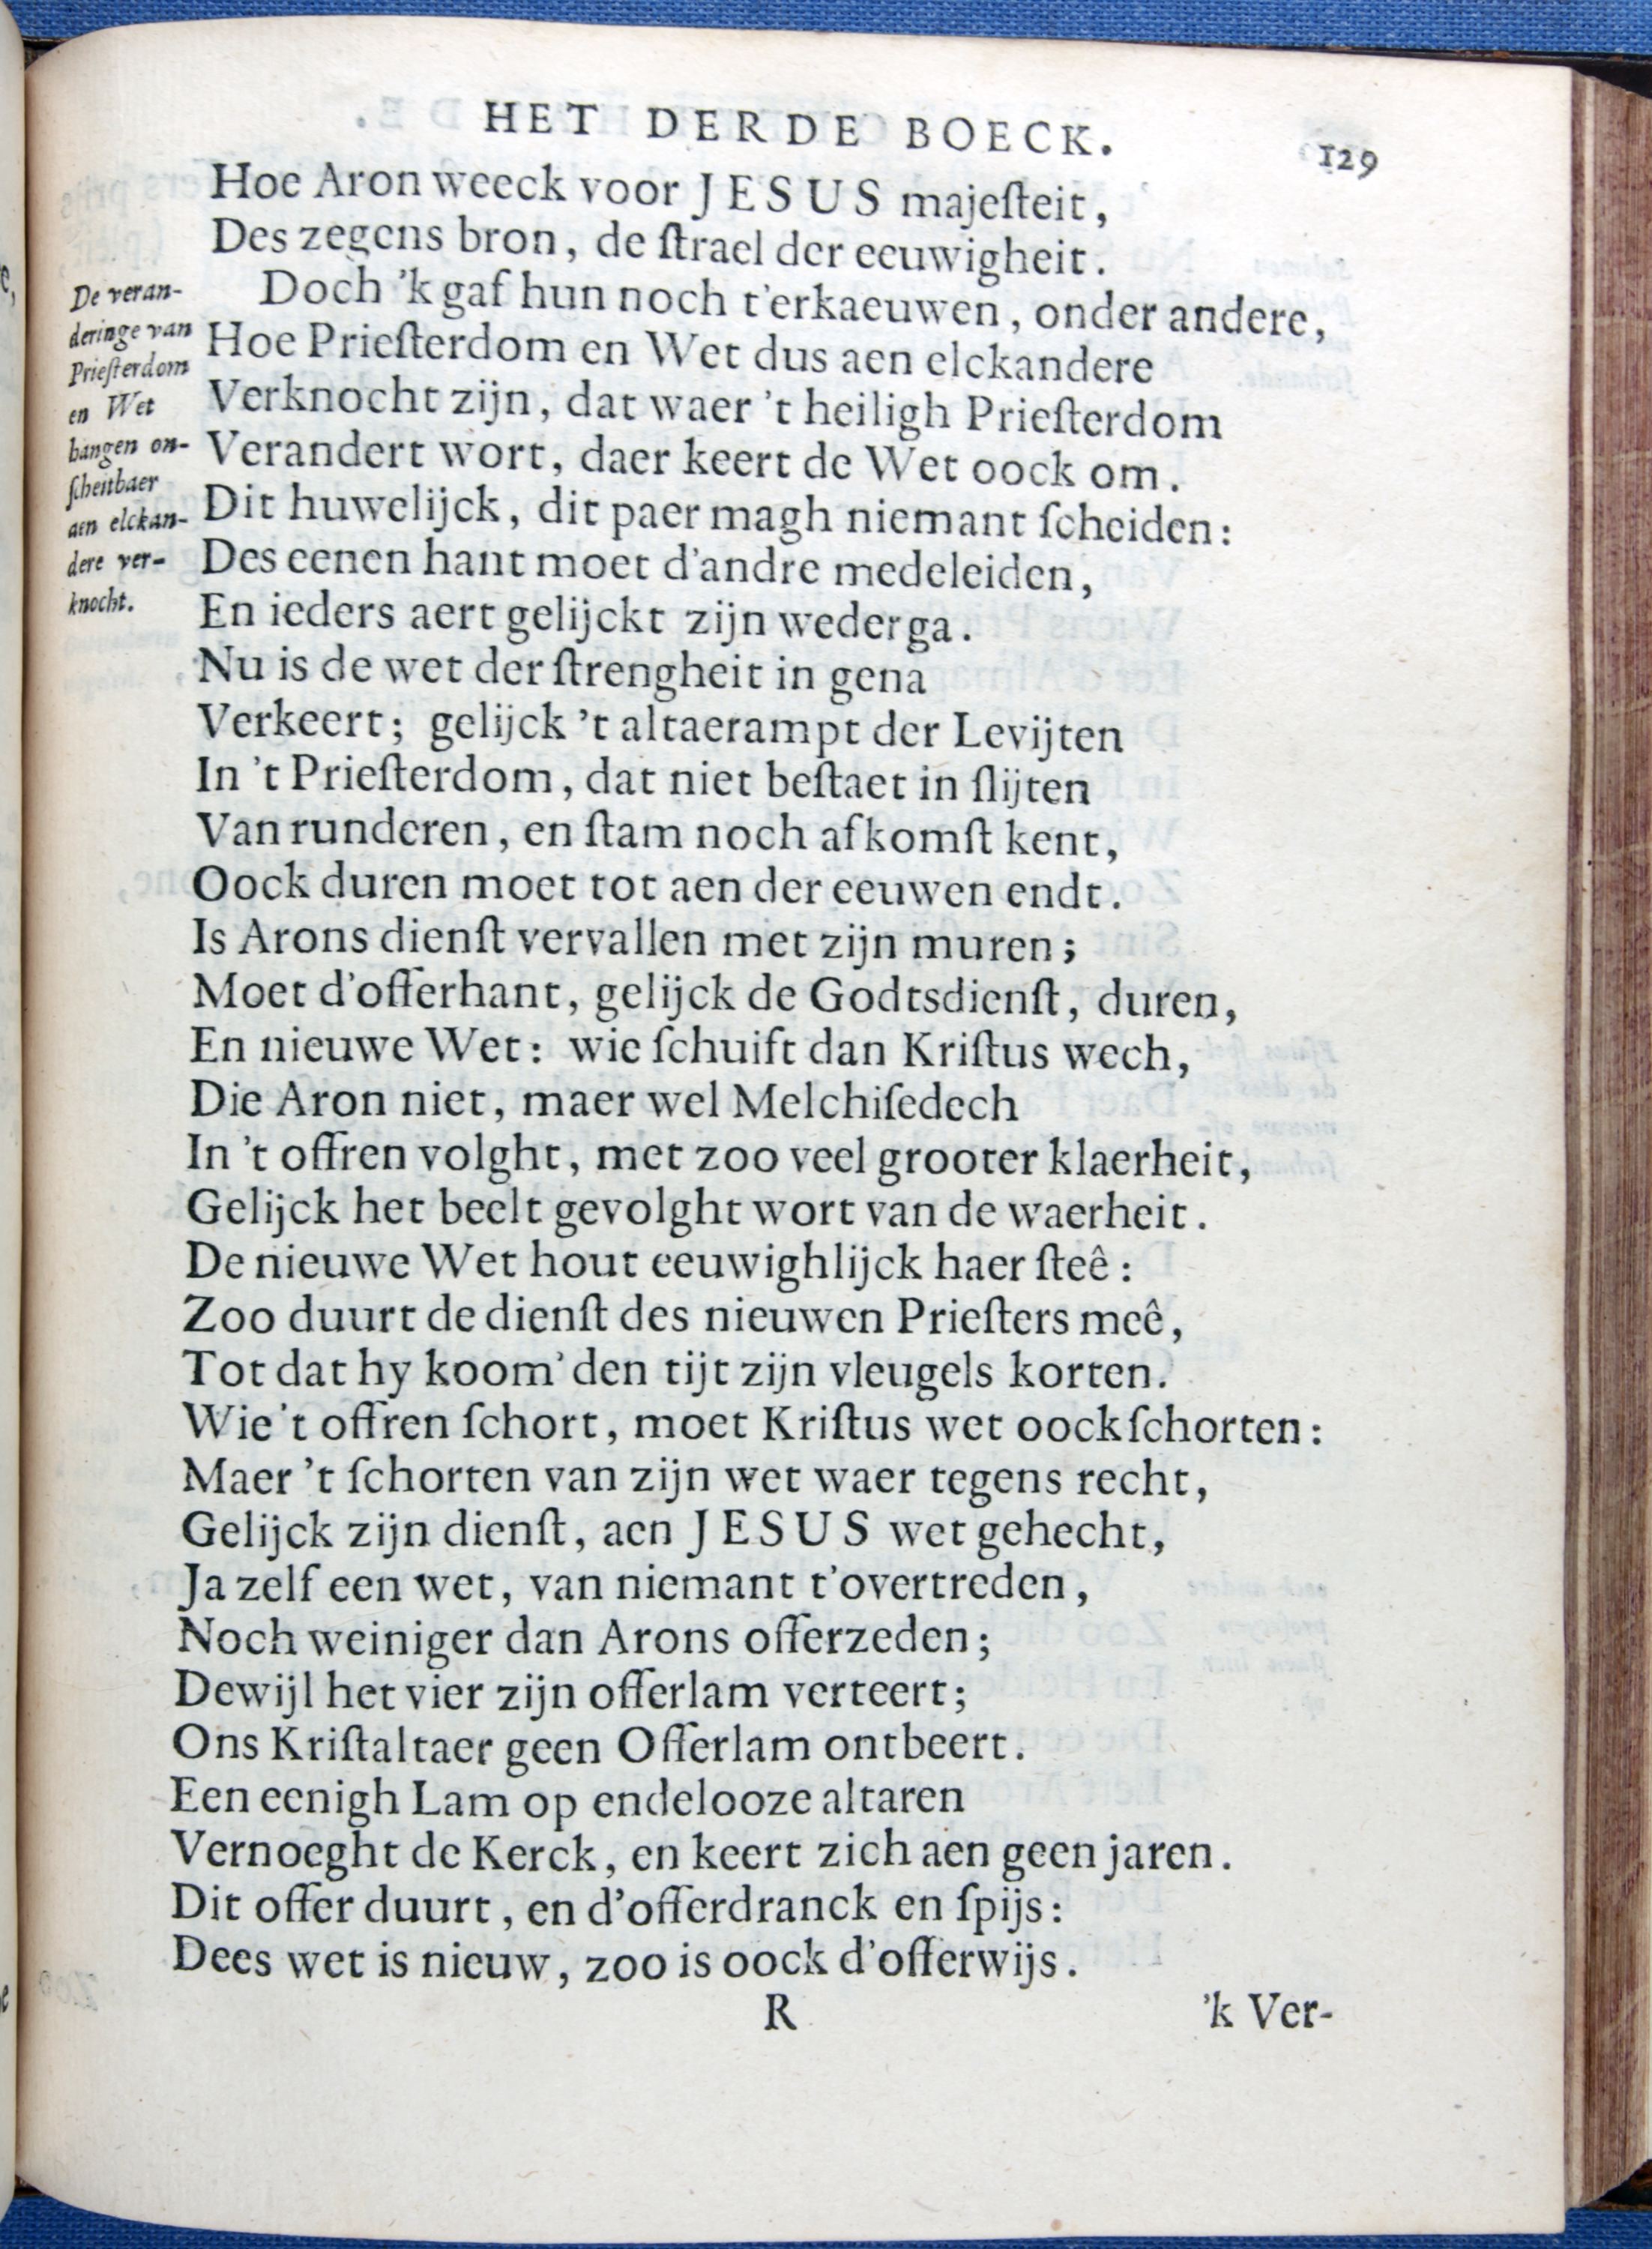 HET DERDE BOECK.
129
Hoe Aron weeck voor JESUS majeſteit,
Des zegens bron, de ſtrael der eeuwigheit.
Doch 'k gaf hun noch t'erkaeuwen, onder andere,
Hoe Prieſterdom en Wet dus aen elckandere
Verknocht zijn, dat waer 't heiligh Prieſterdom
Verandert wort, daer keert de Wet oock om.
Dit huwelijck, dit paer magh niemant ſcheiden:
Des eenen hant moet d'andre medeleiden,
En ieders aert gelijckt zijn wederga.
Nu is de wet der ſtrengheit in gena
Verkeert; gelijck 't altaerampt der Levijten
In 't Prieſterdom, dat niet beſtaet in ſlijten
Van runderen, en ſtam noch afkomſt kent,
Oock duren moet tot aen der eeuwen endt.
Is Arons dienſt vervallen met zijn muren;
Moet d'offerhant, gelijck de Godtsdienſt, duren,
En nieuwe Wet: wie ſchuift dan Kriſtus wech,
Die Aron niet, maer wel Melchiſedech
In 't offren volght, met zoo veel grooter klaerheit,
Gelijck het beelt gevolght wort van de waerheit.
De nieuwe Wet hout eeuwighlijck haer ſteê:
Zoo duurt de dienſt des nieuwen Prieſters meê,
Tot dat hy koom' den tijt zijn vleugels korten.
Wie 't offren ſchort, moet Kriſtus wet oock ſchorten:
Maer 't ſchorten van zijn wet waer tegens recht,
Gelijck zijn dienſt, aen JESUS wet gehecht,
Ja zelf een wet, van niemant t'overtreden,
Noch weiniger dan Arons offerzeden;
Dewijl het vier zijn offerlam verteert;
Ons Kriſtaltaer geen Offerlam ontbeert.
Een eenigh Lam op endelooze altaren
Vernoeght de Kerck, en keert zich aen geen jaren.
Dit offer duurt, en d'offerdranck en ſpijs:
Dees wet is nieuw, zoo is oock d'offerwijs.
R
'k Ver-
De veran-
deringe van
Prieſterdom
en Wet
hangen on-
ſcheitbaer
aen elckan-
dere ver-
knocht.